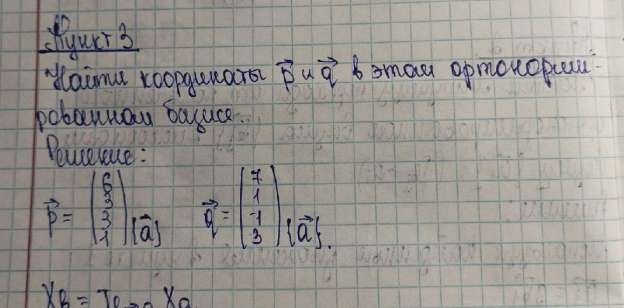 Пункт 3
Найти координаты p⃗ и q⃗ в этом ортонорми-
рованном базисе.
Решение:
p⃗ = (6 3 3 1) {a⃗} q⃗ = (7 1 -1 3) {a⃗}.